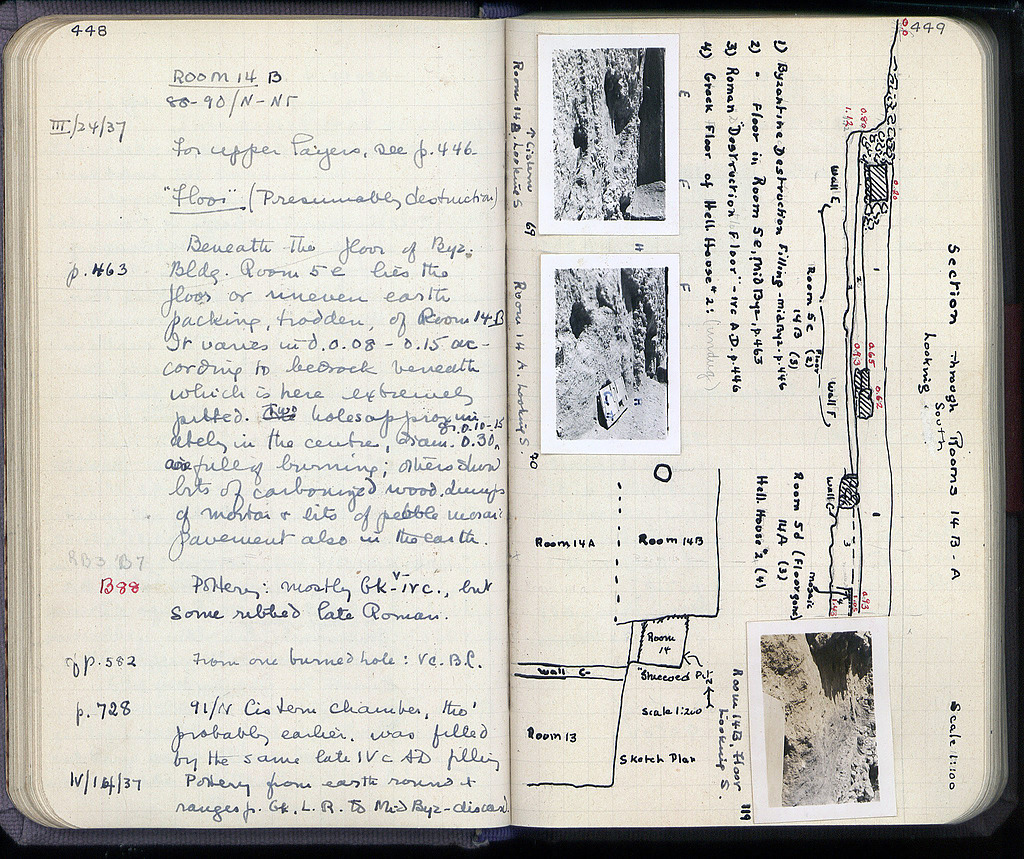 448
ROOM 14 B
88-90/N-NF
III/24/37
For upper layers, see p. 446.
"Floor". (Presumably destruction)
Beneath the floor of Byz.
p. 463 Bldg. Room 5e lies the
floor or uneven earth
packing, trodden, of Room 14 B
It varies in d. 0.08 - 0.15 ac-
cording to bedrock beneath
which is here extremely
pitted. Two holes approxim
ately in the centre, diam. 0.30, gr. 0.10-15
are full of burning; others show
bits of carbonized wood. dumps
of mortar & bits of pebble mosaic
pavement also in the earth.
B 87
B88 Pottery: mostly Gk V-IVc., but
some ribbed late Roman.
cf p. 582 From one burned hole: Vc. B.C.
p. 728 91/N Cistern chamber, tho'
probably earlier, was filled
by the same late IVc AD filling
IV/14/37 Pottery from earth round &
ranges p. Gk. L. R. to Mid Byz - discard.
449
Section through Rooms 14 B - A
Looking South
Scale 1:100
0.0
0.80
1.12
0.20
0.65
0.93
0.62
0.93
Wall E
Room 5e (2)
14B (3)
Floor
Wall F
Wall C
Room 5d (Floor gone)
14A (3)
Hell. House 2 (4)
mosaic
1
2
2
1
3
4
1) Byzantine Destruction Filling - mid Byz. - p. 446
2) " Floor in Room 5e, mid Byz., p. 463
3) Roman "Destruction Floor" - IVc A.D. p. 446
4) Greek Floor of Hell. House 2: (undug)
E
F
H
F
H
↑ Cistern
Room 14 B. Looking S 69
Room 14 A. Looking S. 70
Room 14A
Room 14B
Room 14
Wall C
"Stuccoed Pit"
Scale 1:200
Room 13
Sketch Plan
Room 14B, Floor
Looking S. 119